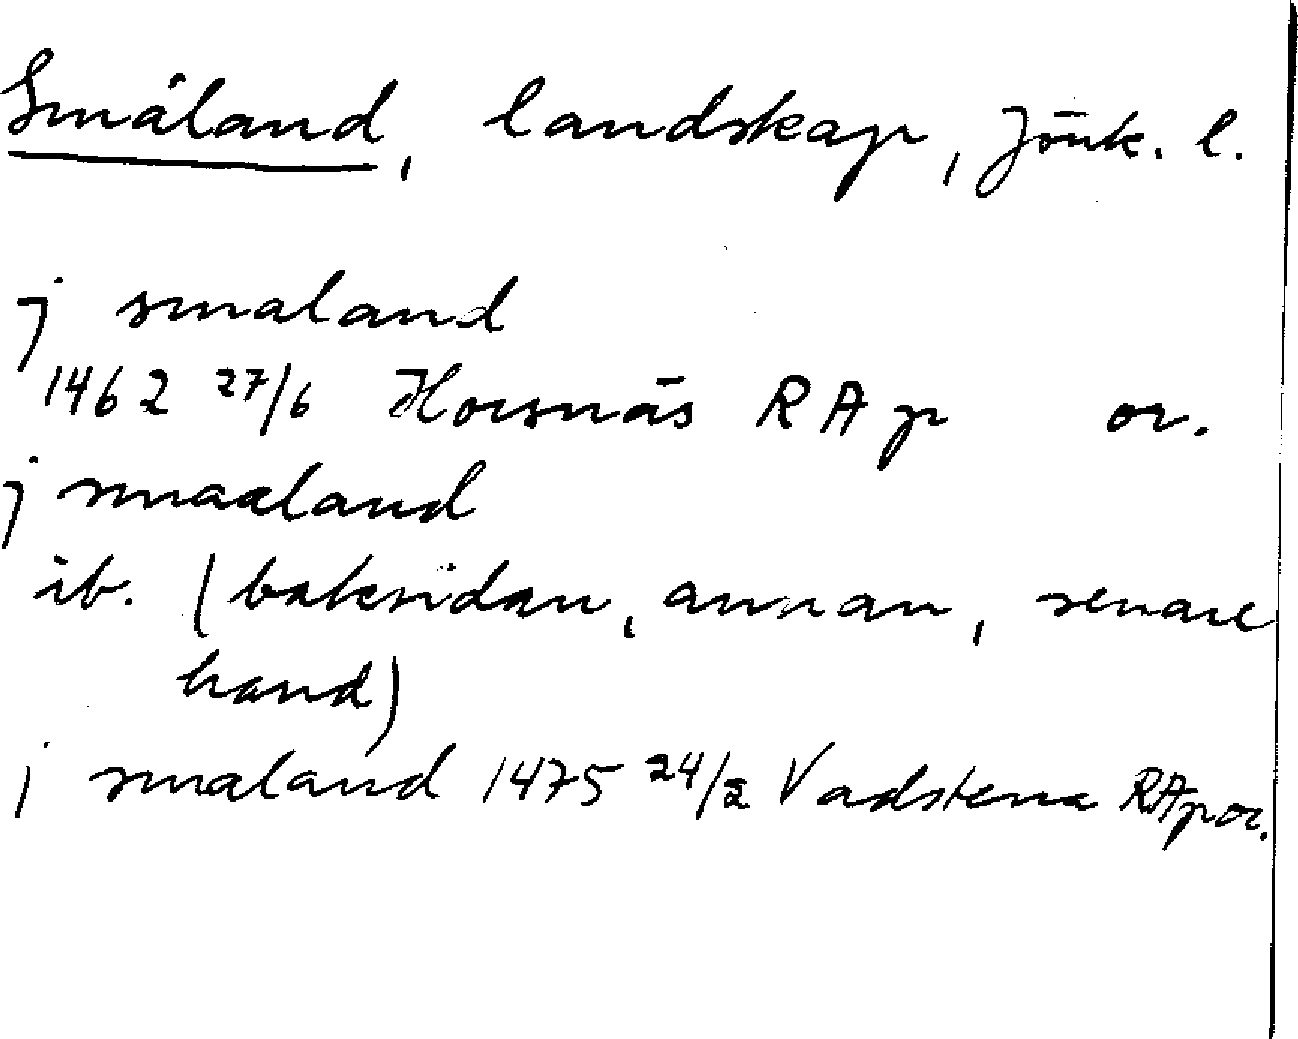 Småland, landskap, Jönk. l.
j smaland
1462 27/6 Horsnäs RAp or.
j smaaland
ib. (baksidan, annan, senare
hand)
j smaland 1475 24/2 Vadstena RAp or.